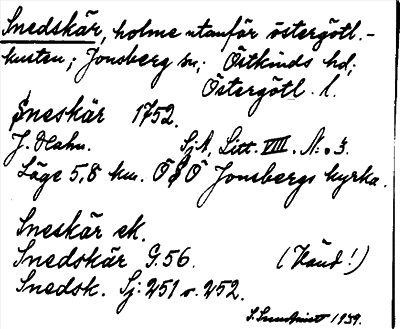 Snedskär, holme utanför östergötl.-
kusten; Jonsberg sn; Östkinds hd;
Östergötl. l.
Sneskär 1752.
J. Hahn. SjA, Litt. VIII. N:o 3.
Läge 5,8 km. ÖSÖ Jonsbergs kyrka.
Sneskär ek.
Snedskär G.56. (Vänd!)
Snedsk. Sj: 251 o. 252.
1939.